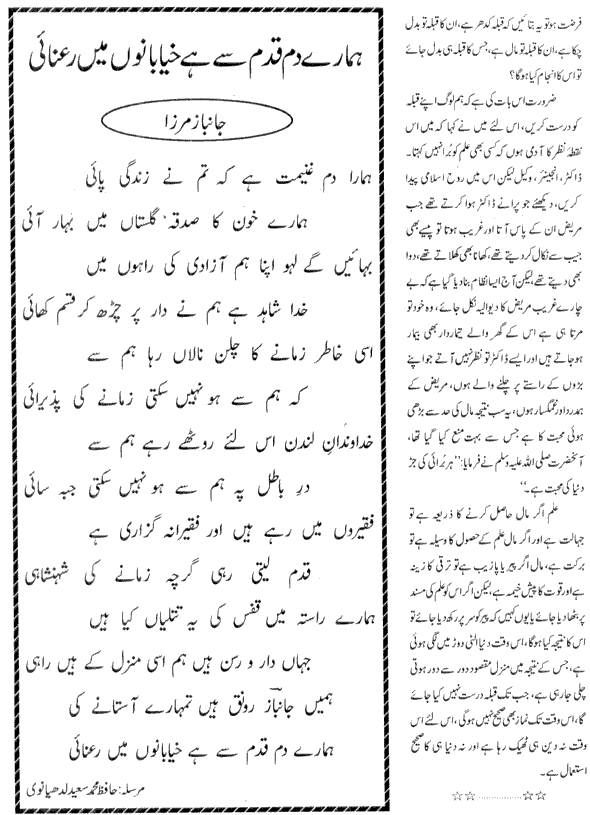 فرصت ہو تو یہ بتائیں کہ قبلہ کدھر ہے، ان کا قبلہ تو بدل
چکا ہے، ان کا قبلہ تو مال ہے، جس کا قبلہ ہی بدل جائے
تو اس کا انجام کیا ہوگا؟
ضرورت اس بات کی ہے کہ ہم لوگ اپنے قبلہ
کو درست کریں، اس لئے میں نے کہا کہ میں اس
نقطۂ نظر کا آدمی ہوں کہ کسی بھی علم کو بُرا نہیں کہتا۔
ڈاکٹر، انجینئر، وکیل لیکن اس میں روح اسلامی پیدا
کریں، دیکھئے جو پرانے ڈاکٹر ہوا کرتے تھے جب
مریض ان کے پاس آتا اور غریب ہوتا تو پیسے بھی
جیب سے نکال کر دیتے تھے، کھانا بھی کھلاتے تھے، دوا
بھی دیتے تھے، لیکن آج ایسا نظام بنا دیا گیا ہے کہ بے
چارے غریب مریض کا دیوالیہ نکل جائے، وہ خود تو
مرتا ہی ہے اس کے گھر والے تیماردار بھی بیمار
ہو جاتے ہیں اور ایسے ڈاکٹر تو نظر نہیں آتے جو اپنے
بڑوں کے راستے پر چلنے والے ہوں، مریض کے
ہمدرد اور غمگسار ہوں، یہ سب نتیجہ مال کی حد سے بڑھی
ہوئی محبت کا ہے جس سے بہت منع کیا گیا تھا،
آنحضرت صلی اللہ علیہ وسلم نے فرمایا: ”ہر بُرائی کی جڑ
دنیا کی محبت ہے۔“
علم اگر مال حاصل کرنے کا ذریعہ ہے تو
جہالت ہے اور اگر مال علم کے حصول کا وسیلہ ہے تو
برکت ہے، مال اگر پیر یا پازیب ہے تو ترقی کا زینہ
ہے اور قوت کا پیش خیمہ ہے، لیکن اگر اس کو علم کی مسند
پر بٹھا دیا جائے یا یوں کہیں کہ پیر کو سر پر رکھ دیا جائے تو
اس کا نتیجہ کیا ہوگا، اس وقت دنیا الٹی دوڑ میں لگی ہوئی
ہے، جس کے نتیجہ میں منزل مقصود دور سے دور ہوتی
چلی جا رہی ہے، جب تک قبلہ درست نہیں کیا جائے
گا، اس وقت تک نماز بھی صحیح نہیں ہوگی، اس لئے اس
وقت نہ دین ہی ٹھیک رہا ہے اور نہ دنیا ہی کا صحیح
استعمال ہے۔
☆☆..............☆☆
ہمارے دم قدم سے ہے خیابانوں میں رعنائی
جانباز مرزا
ہمارا دم غنیمت ہے کہ تم نے زندگی پائی
ہمارے خون کا صدقہ گلستاں میں بہار آئی
بہائیں گے لہو اپنا ہم آزادی کی راہوں میں
خدا شاہد ہے ہم نے دار پر چڑھ کر قسم کھائی
اسی خاطر زمانے کا چلن نالاں رہا ہم سے
کہ ہم سے ہو نہیں سکتی زمانے کی پذیرائی
خداوندانِ لندن اس لئے روٹھے رہے ہم سے
درِ باطل پہ ہم سے ہو نہیں سکتی جبہ سائی
فقیروں میں رہے ہیں اور فقیرانہ گزاری ہے
قدم لیتی رہی گرچہ زمانے کی شہنشاہی
ہمارے راستہ میں قفس کی یہ تتلیاں کیا ہیں
جہاں دار و رسن ہیں ہم اسی منزل کے ہیں راہی
ہمیں جانبازؔ رونق ہیں تمہارے آستانے کی
ہمارے دم قدم سے ہے خیابانوں میں رعنائی
مرسلہ: حافظ محمد سعید لدھیانوی